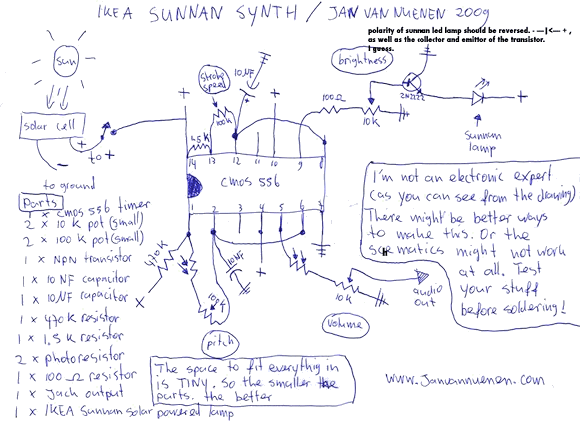 IKEA SUNNAN SYNTH / JAN VAN NUENEN 2009
polarity of sunnan led lamp should be reversed. - —|<— + ,
as well as the collector and emittor of the transistor.
I guess.
sun
solar cell
+
-
to +
to ground
stroke speed
10 NF
+
100k
1.5K
+
brightness
100Ω
10K
2N2222
+
sunnan
lamp
14 13 12 11 10 9 8
cmos 556
1 2 3 4 5 6 7
470K
X
100k
10NF
+
pitch
10K
volume
audio
out
Parts
1 x cmos 556 timer
2 x 10 K pot (small)
2 x 100 K pot (small)
1 x NPN transistor
1 x 10 NF capacitor
1 x 10 NF capacitor
1 x 470 K resistor
1 x 1.5 K resistor
2 x photoresistor
1 x 100 Ω resistor
1 x Jack output
1 x IKEA Sunnan solar powered lamp
I'm not an electronic expert
(as you can see from the drawing)
There might be better ways
to make this. Or the
scematics might not work
at all. Test
your stuff
before soldering!
The space to fit everything in
is TINY. So the smaller the
parts. the better
www.Janvannuenen.com